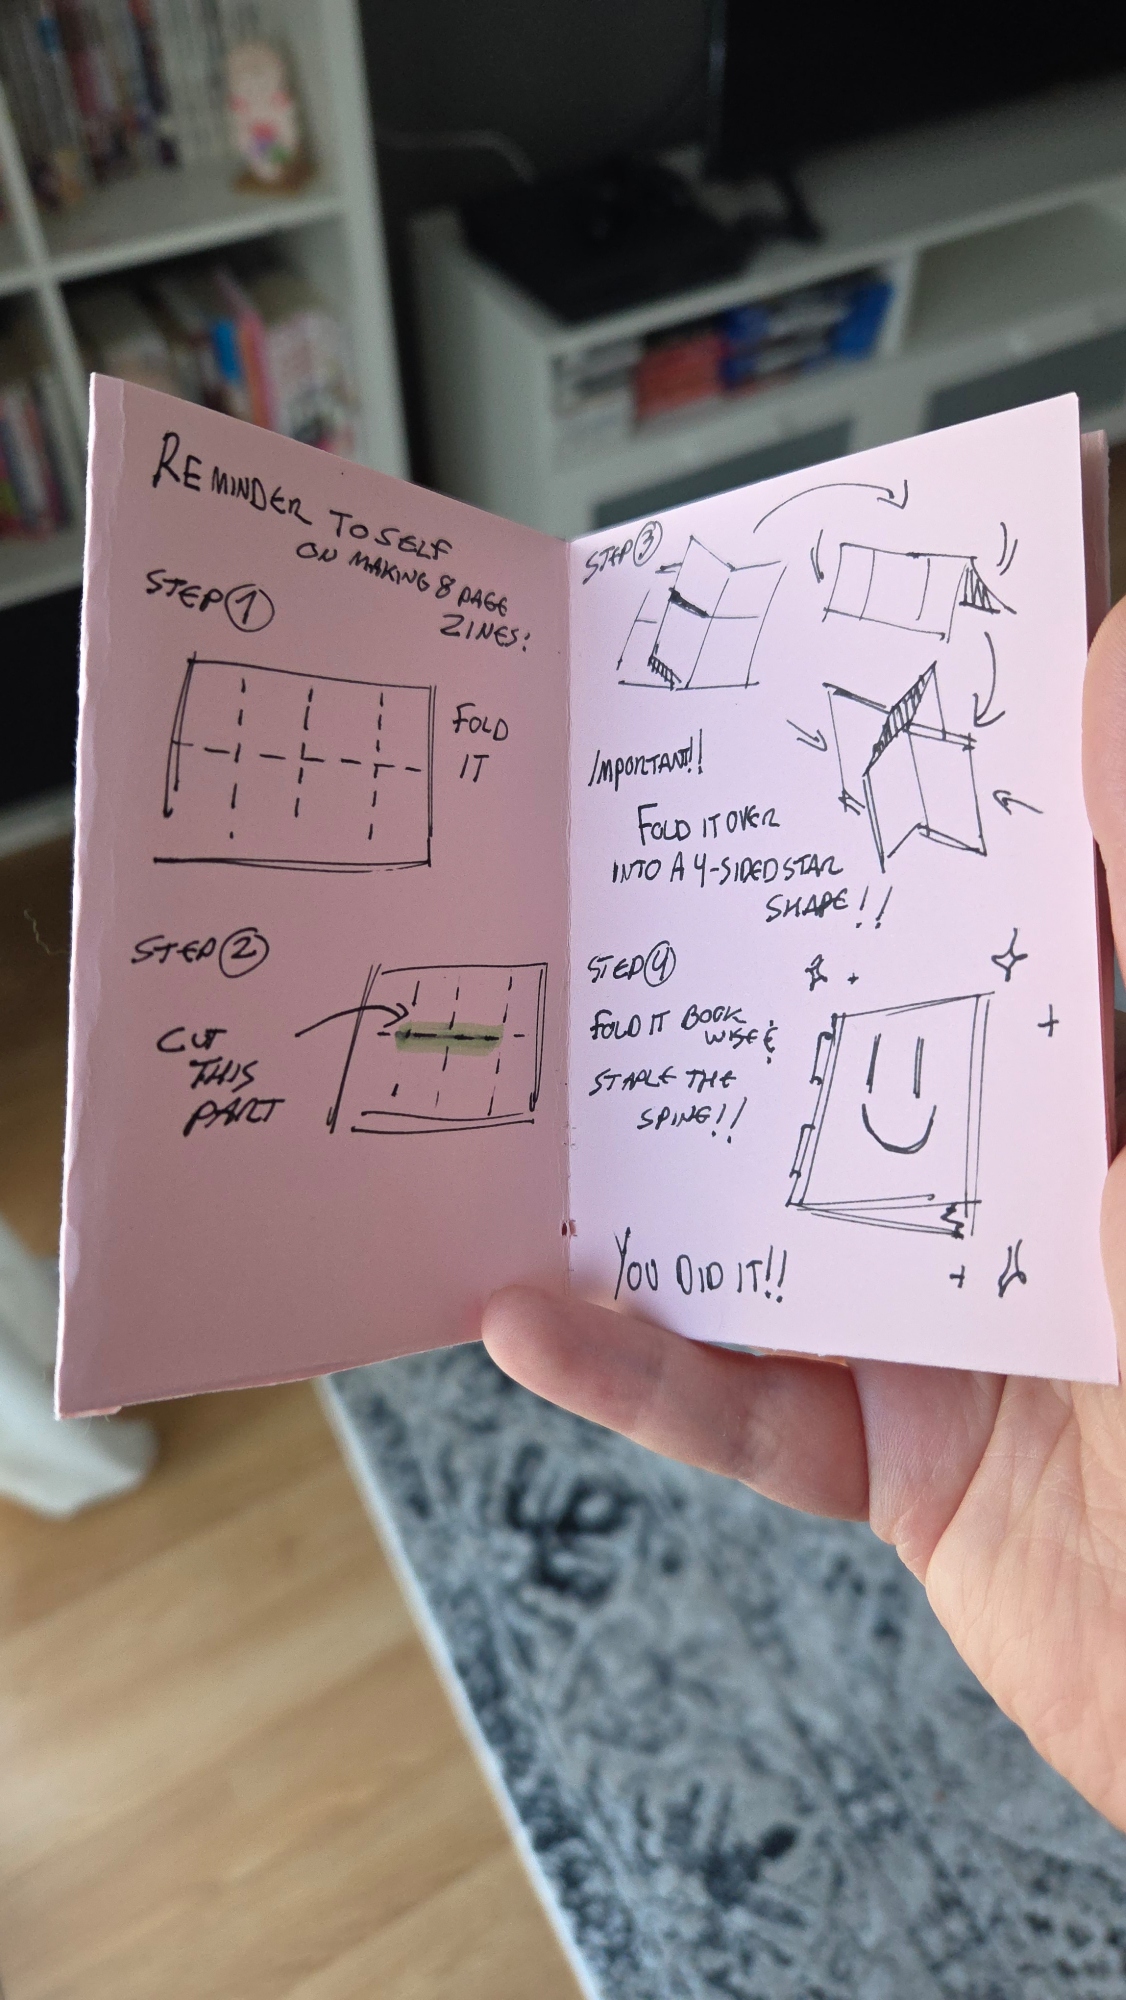 REMINDER TO SELF
ON MAKING 8 PAGE
ZINES:
STEP 1
FOLD
IT
STEP 2
CUT
THIS
PART
STEP 3
IMPORTANT!!
FOLD IT OVER
INTO A 4-SIDED STAR
SHAPE!!
STEP 4
FOLD IT BOOK
WISE &
STAPLE THE
SPINE!!
YOU DID IT!!